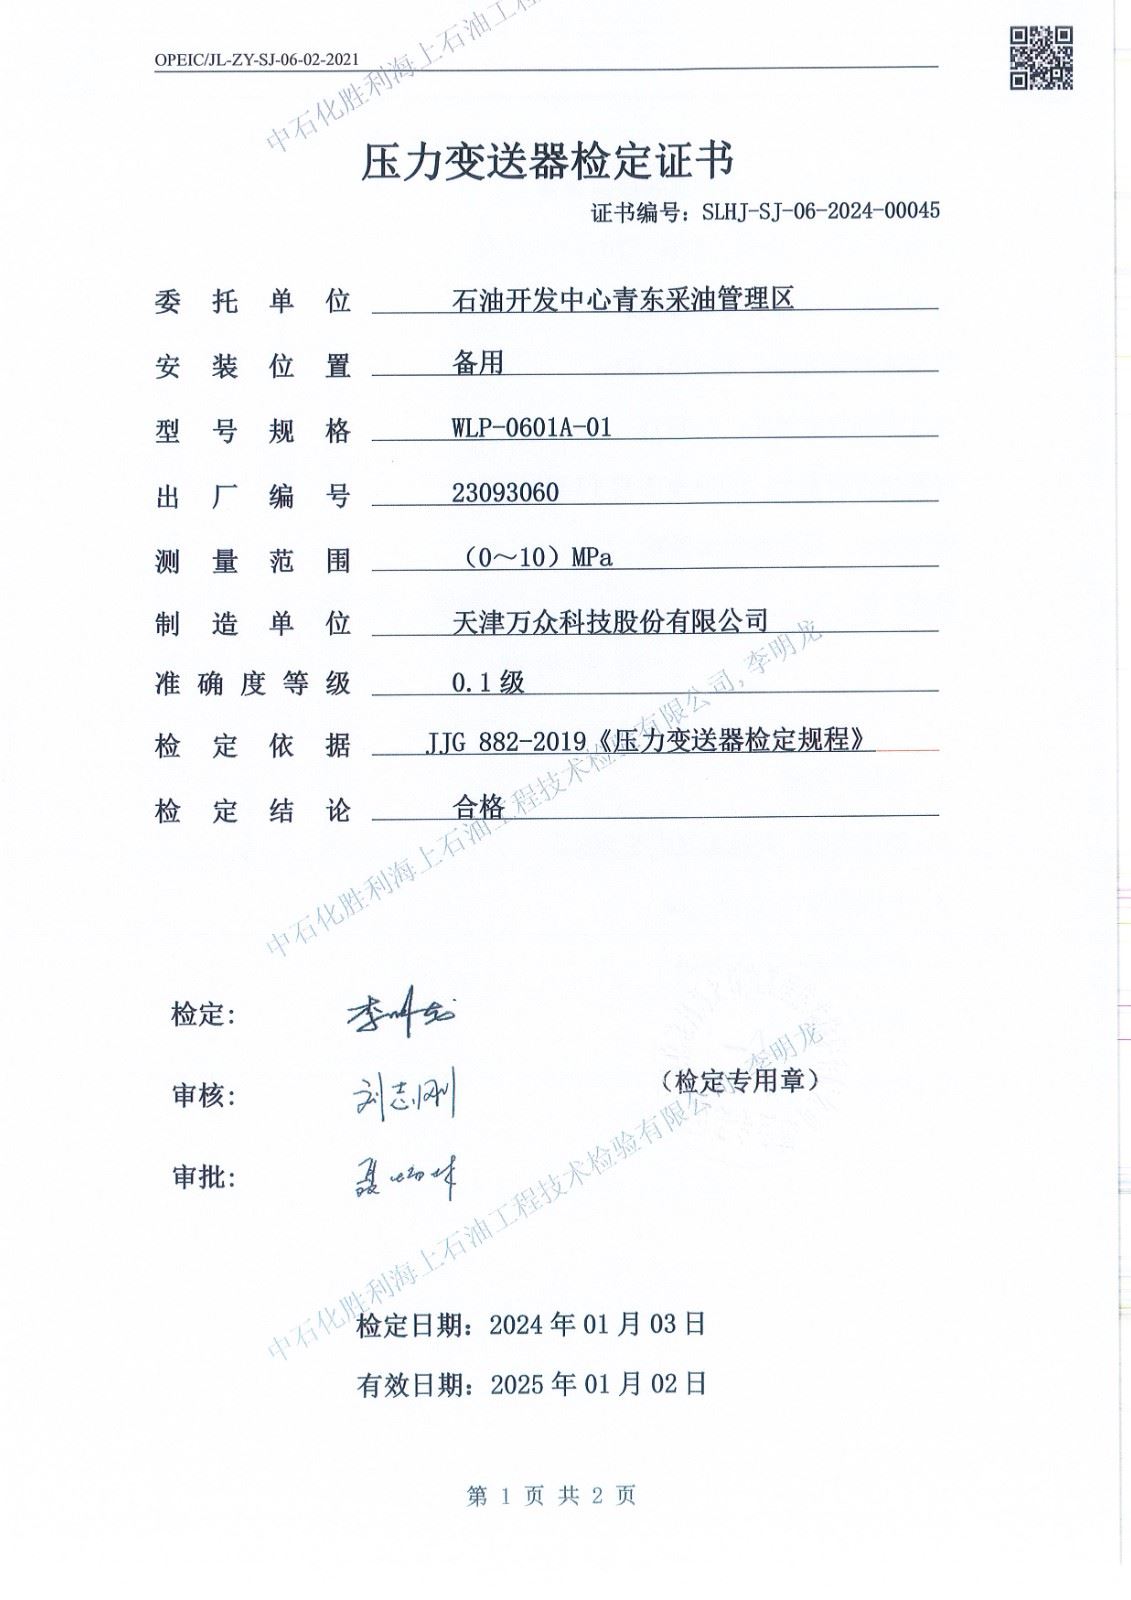 OPEIC/JL-ZY-SJ-06-02-2021
中石化胜利海上石油工程
压力变送器检定证书
证书编号：SLHJ-SJ-06-2024-00045
委托单位 石油开发中心青东采油管理区
安装位置 备用
型号规格 WLP-0601A-01
出厂编号 23093060
测量范围 （0～10）MPa
制造单位 天津万众科技股份有限公司
准确度等级 0.1级
检定依据 JJG 882-2019《压力变送器检定规程》
检定结论 合格
中石化胜利海上石油工程技术检验有限公司, 李明龙
检定： 李明龙
审核： 刘志刚
（检定专用章）
审批：
中石化胜利海上石油工程技术检验有限公司, 李明龙
检定日期：2024年01月03日
有效日期：2025年01月02日
第 1 页 共 2 页